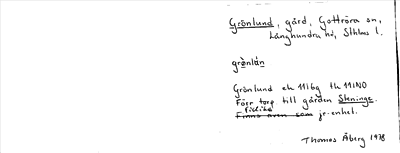 Grönlund, gård, Gottröra sn,
Långhundra hd, Sthlms l.
grö̀nlùn
Grönlund ek 116g th 11IN0
Förr torp till gården Steninge.
Finns även som jr-enhet.
Thomas Åberg 1978